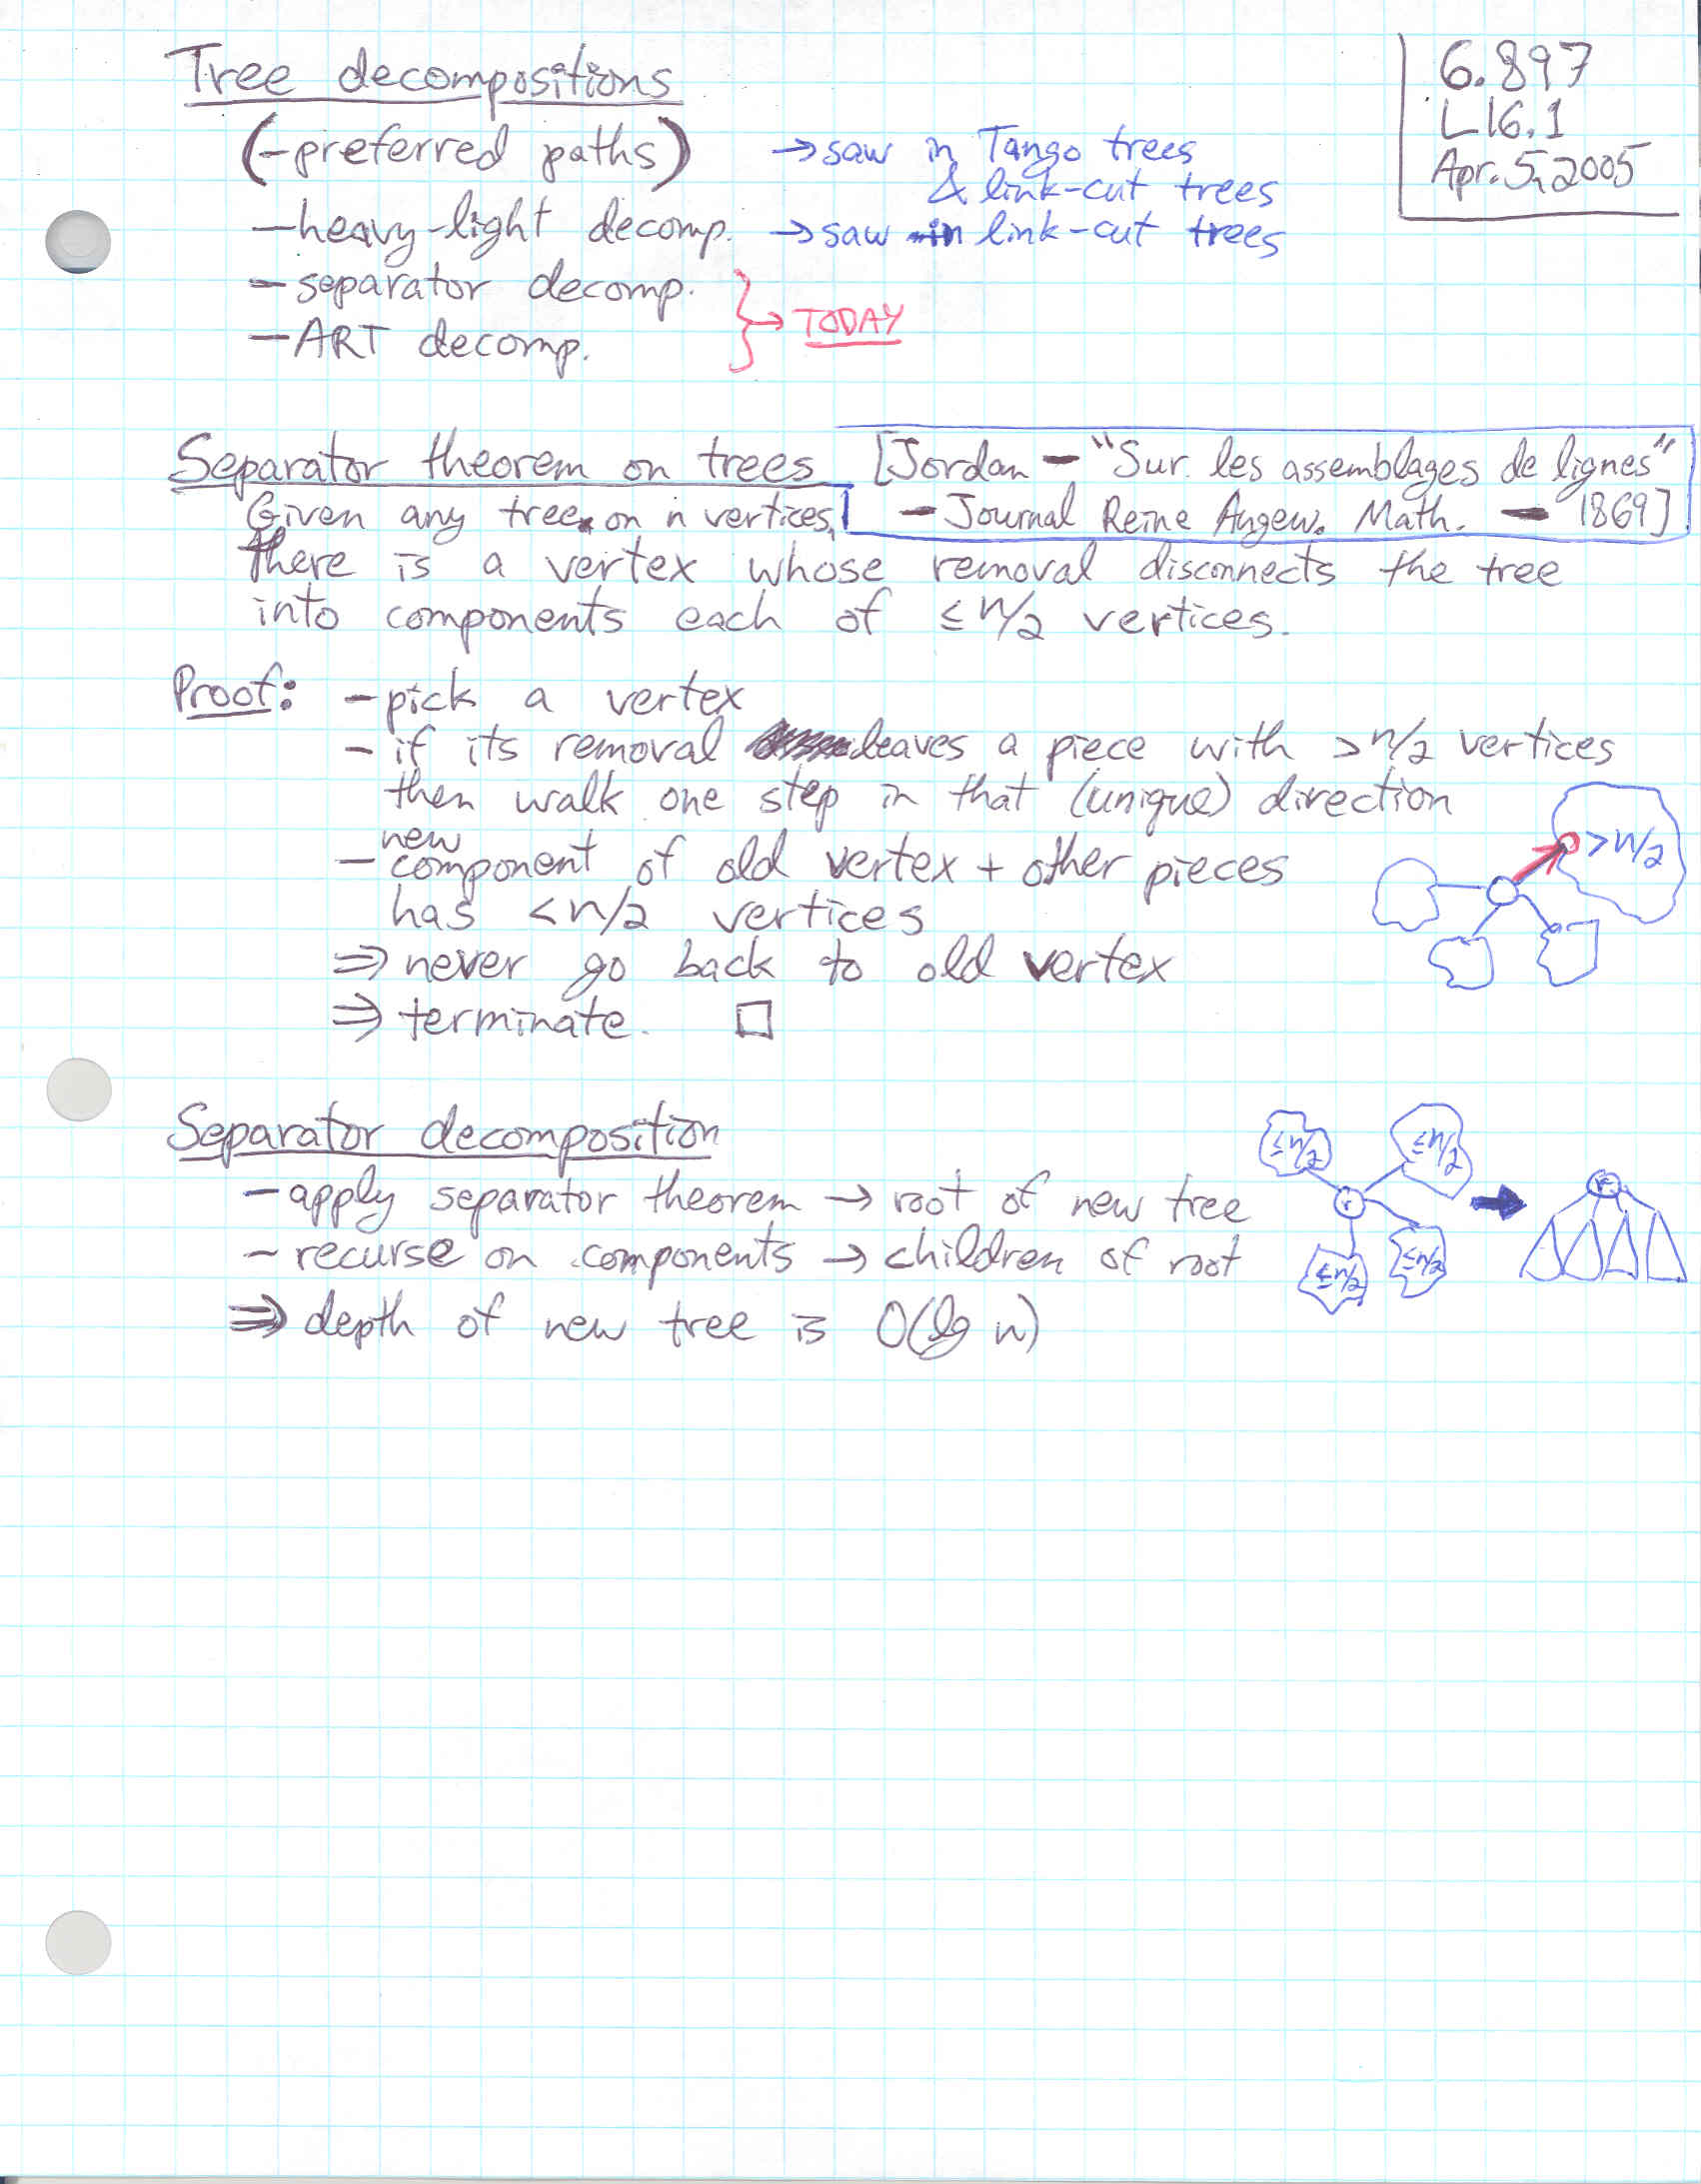 Tree decompositions
6.897
L16.1
Apr. 5, 2005
(-preferred paths) → saw in Tango trees
& link-cut trees
- heavy-light decomp. → saw in link-cut trees
- separator decomp.
- ART decomp.
} → TODAY
Separator theorem on trees [Jordan - "Sur les assemblages de lignes"
- Journal Reine Angew. Math. - 1869]
Given any tree on n vertices,
there is a vertex whose removal disconnects the tree
into components each of ≤ n/2 vertices.
Proof: - pick a vertex
- if its removal leaves a piece with > n/2 vertices
then walk one step in that (unique) direction
new
- component of old vertex + other pieces
has < n/2 vertices
> n/2
⇒ never go back to old vertex
⇒ terminate. □
Separator decomposition
≤n/2
≤n/2
r
r
≤n/2
≤n/2
- apply separator theorem → root of new tree
- recurse on components → children of root
⇒ depth of new tree is O(lg n)